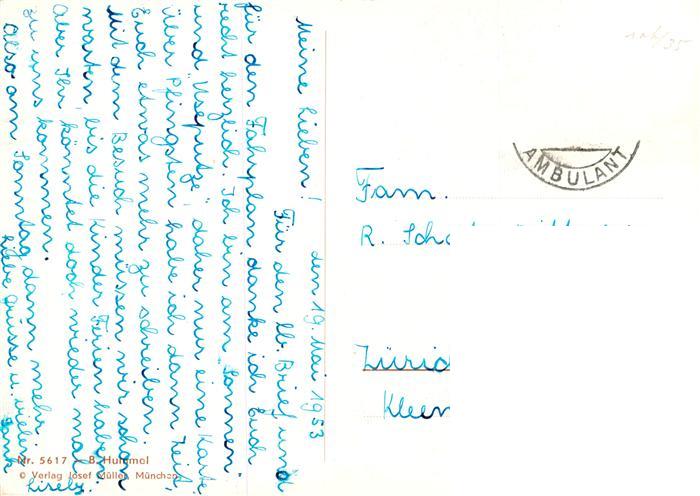 den 19. Mai 1953
Meine Lieben!
Für den lb. Brief und
für den Fahrplan danke ich Euch
recht herzlich. Ich bin am "Sonnen
und Usepützge" daher nur eine Karte.
Über Pfingsten habe ich dann Zeit
Euch etwas mehr zu schreiben.
Mit dem Besuch müssen wir schon
warten, bis die Kinder Ferien haben.
Aber Ihr könntet doch wieder mal
zu uns kommen.
Also am Sonntag dann mehr.
Liebe Grüsse u. vielen
Dank
Lisely.
Nr. 5617 — B. Hummel
© Verlag Josef Müller, München
AMBULANT
Fam.
R. Sch
Züric